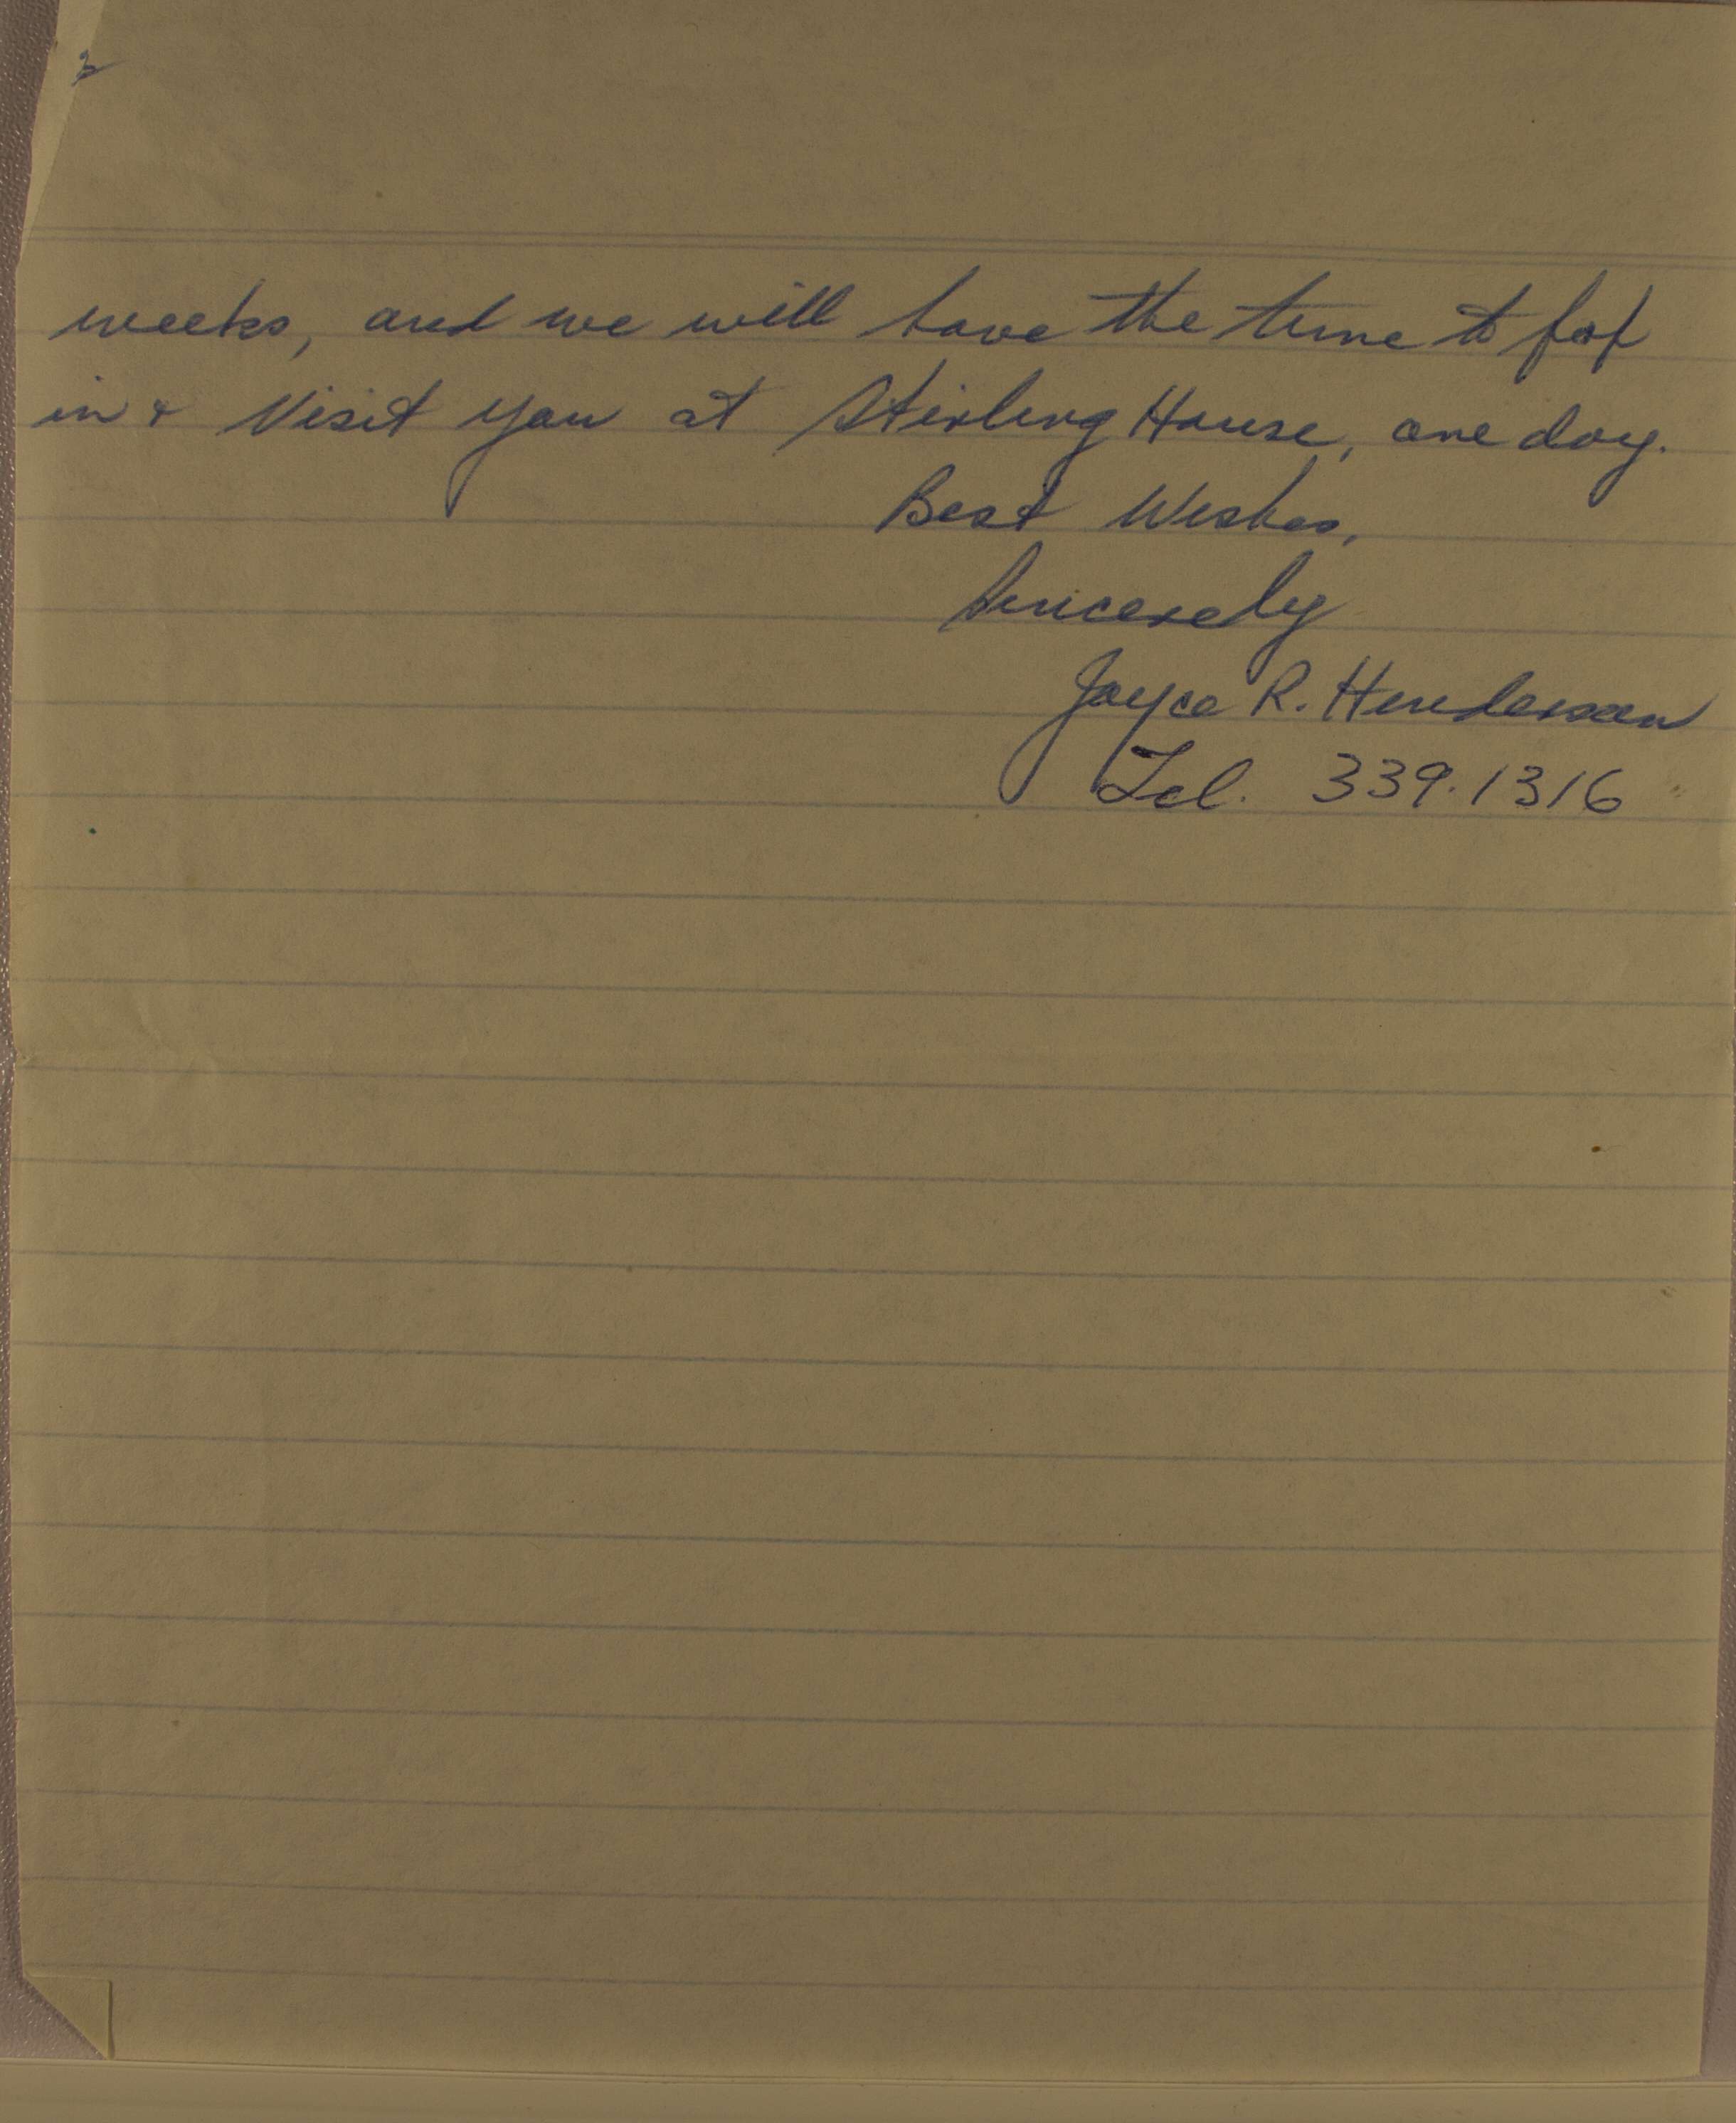 2
weeks, and we will have the time to pop
in + Visit you at Stirling House, one day.
Best Wishes,
Sincerely
Joyce R. Henderson
Tel. 339.1316